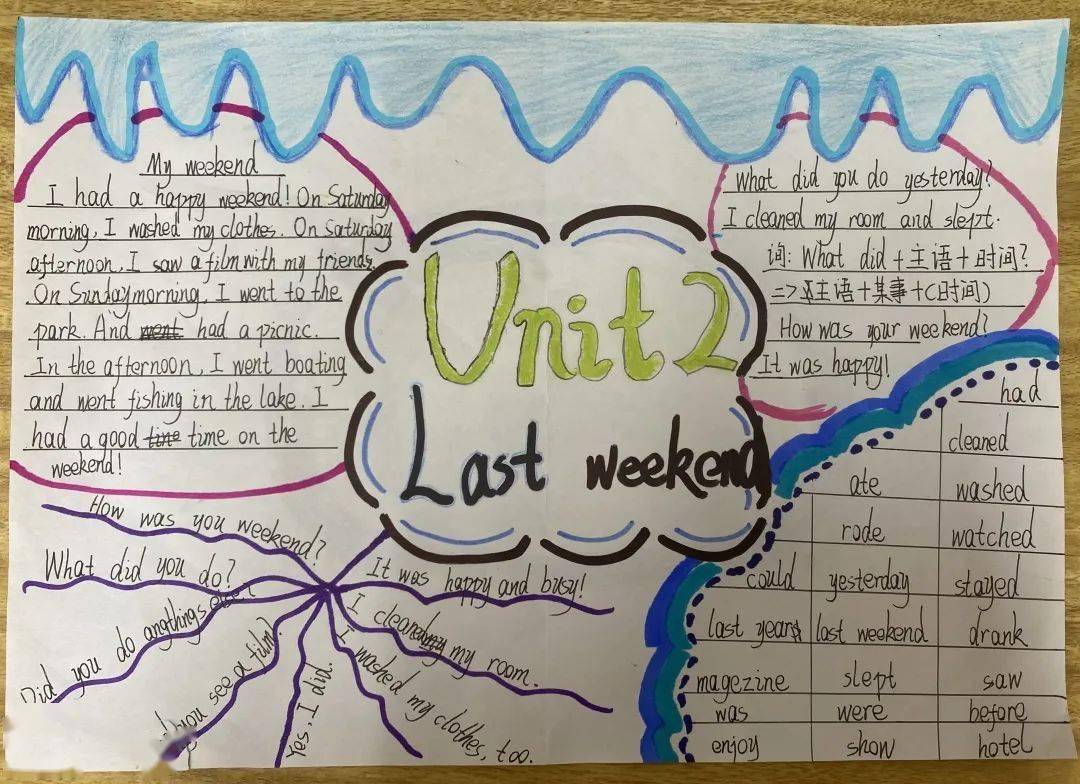 My weekend
I had a happy weekend! On Saturday
morning, I washed my clothes. On Saturday
afternoon, I saw a film with my friends.
On Sunday morning, I went to the
park. And went had a picnic.
In the afternoon, I went boating
and went fishing in the lake. I
had a good tine time on the
weekend!
Unit 2
Last weekend
What did you do yesterday?
I cleaned my room and slept.
问: What did + 主语 + 时间?
=> 主语 + 某事 + (时间)
How was your weekend?
It was happy!
How was you weekend?
What did you do?
Did you do angthings else?
you see a film?
Yes, I did.
I washed my clothes, too.
I cleaned my room.
It was happy and busy!
had
cleaned
ate washed
rode watched
could yesterday stayed
last years last weekend drank
magezine slept saw
was were before
enjoy show hotel